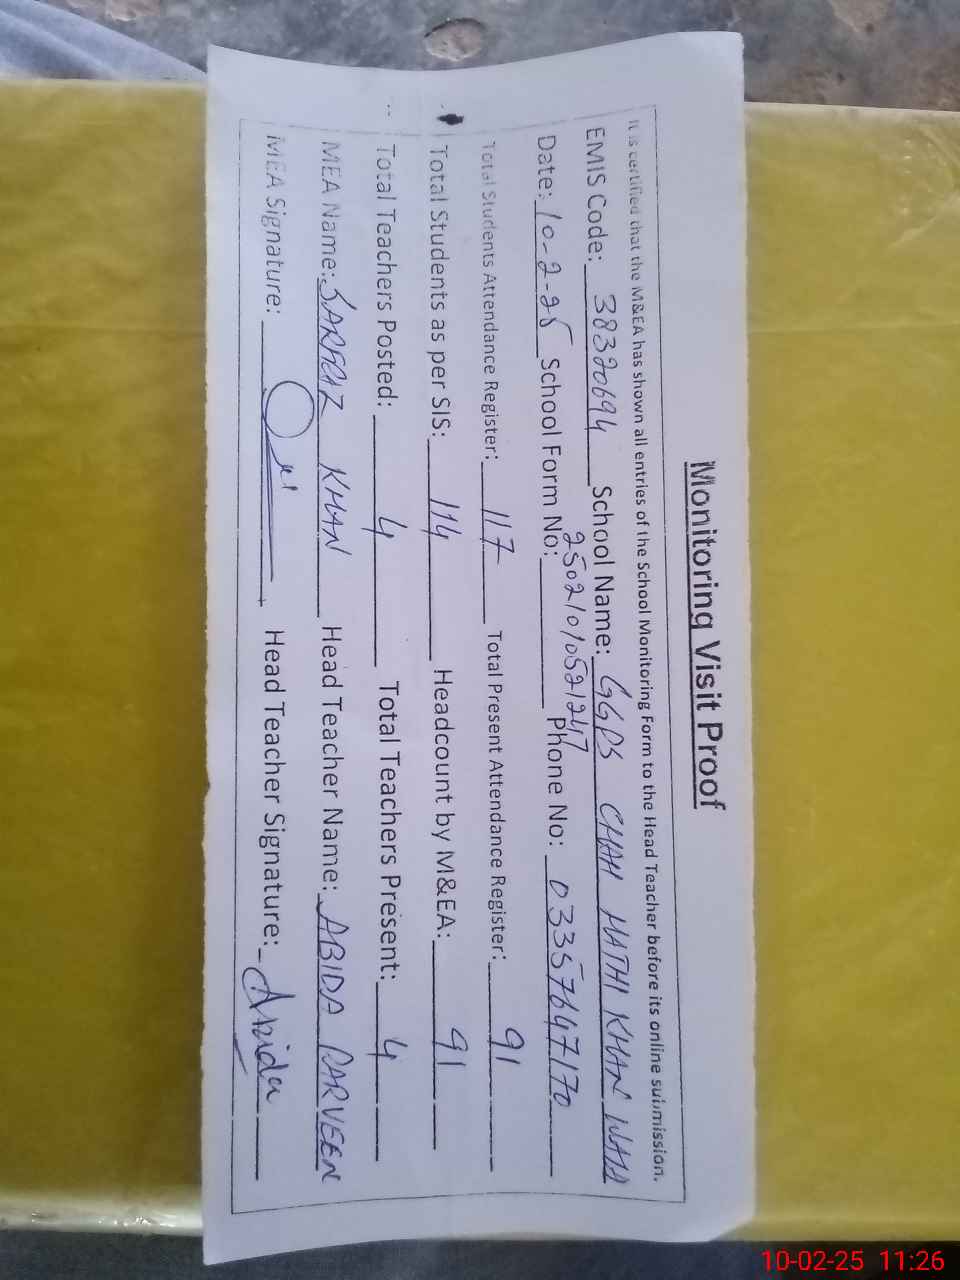 Monitoring Visit Proof
It is certified that the M&EA has shown all entries of the School Monitoring Form to the Head Teacher before its online submission.
EMIS Code: 38320694 School Name: GGPS CHAH HATHI KHAN WALA
Date: 10-2-25 School Form No: 25021010521247 Phone No: 03357647170
Total Students Attendance Register: 117 Total Present Attendance Register: 91
Total Students as per SIS: 114 Headcount by M&EA: 91
Total Teachers Posted: 4 Total Teachers Present: 4
MEA Name: SARFRAZ KHAN Head Teacher Name: ABIDA PARVEEN
MEA Signature: Head Teacher Signature: Abida
10-02-25 11:26